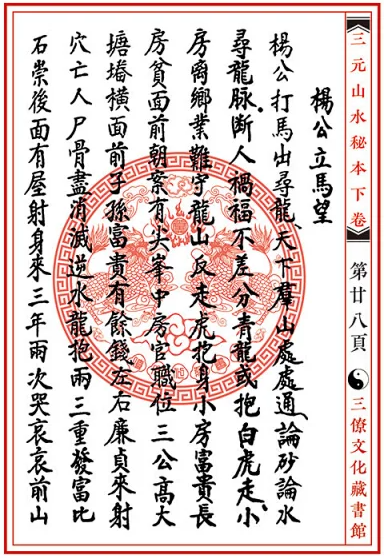 三元山水秘本下卷
第廿八頁
三僚文化藏書館
楊公立馬望
楊公打馬出尋龍天下羣山處處通論砂論水
尋龍脉断人禍福不差分青龍或抱白虎走小
房离鄉業難守龍山反走虎抱身小房富貴長
房貧面前朝案有尖峯中房官職位三公高大
塘橫面前子孫富貴有餘錢左右廉貞來射
穴亡人尸骨盡消滅逆水龍抱兩三重發富比
石崇後面有屋射身來三年兩次哭哀哀前山